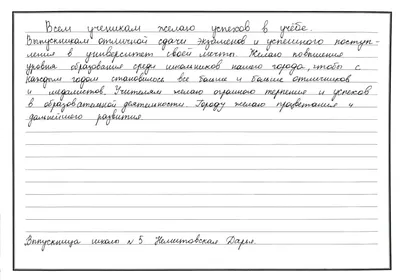 Всем ученикам желаю успехов в учёбе.
Выпускникам отличной сдачи экзаменов и успешного поступ-
ления в университет своей мечты. Желаю повышения
уровня образования среди школьников нашего города, чтобы с
каждым годом становилось все больше и больше отличников
и медалистов. Учителям желаю огромного терпения и успехов
в образовательной деятельности. Городу желаю процветания и
дальнейшего развития.
Выпускница школы №5 Дарья